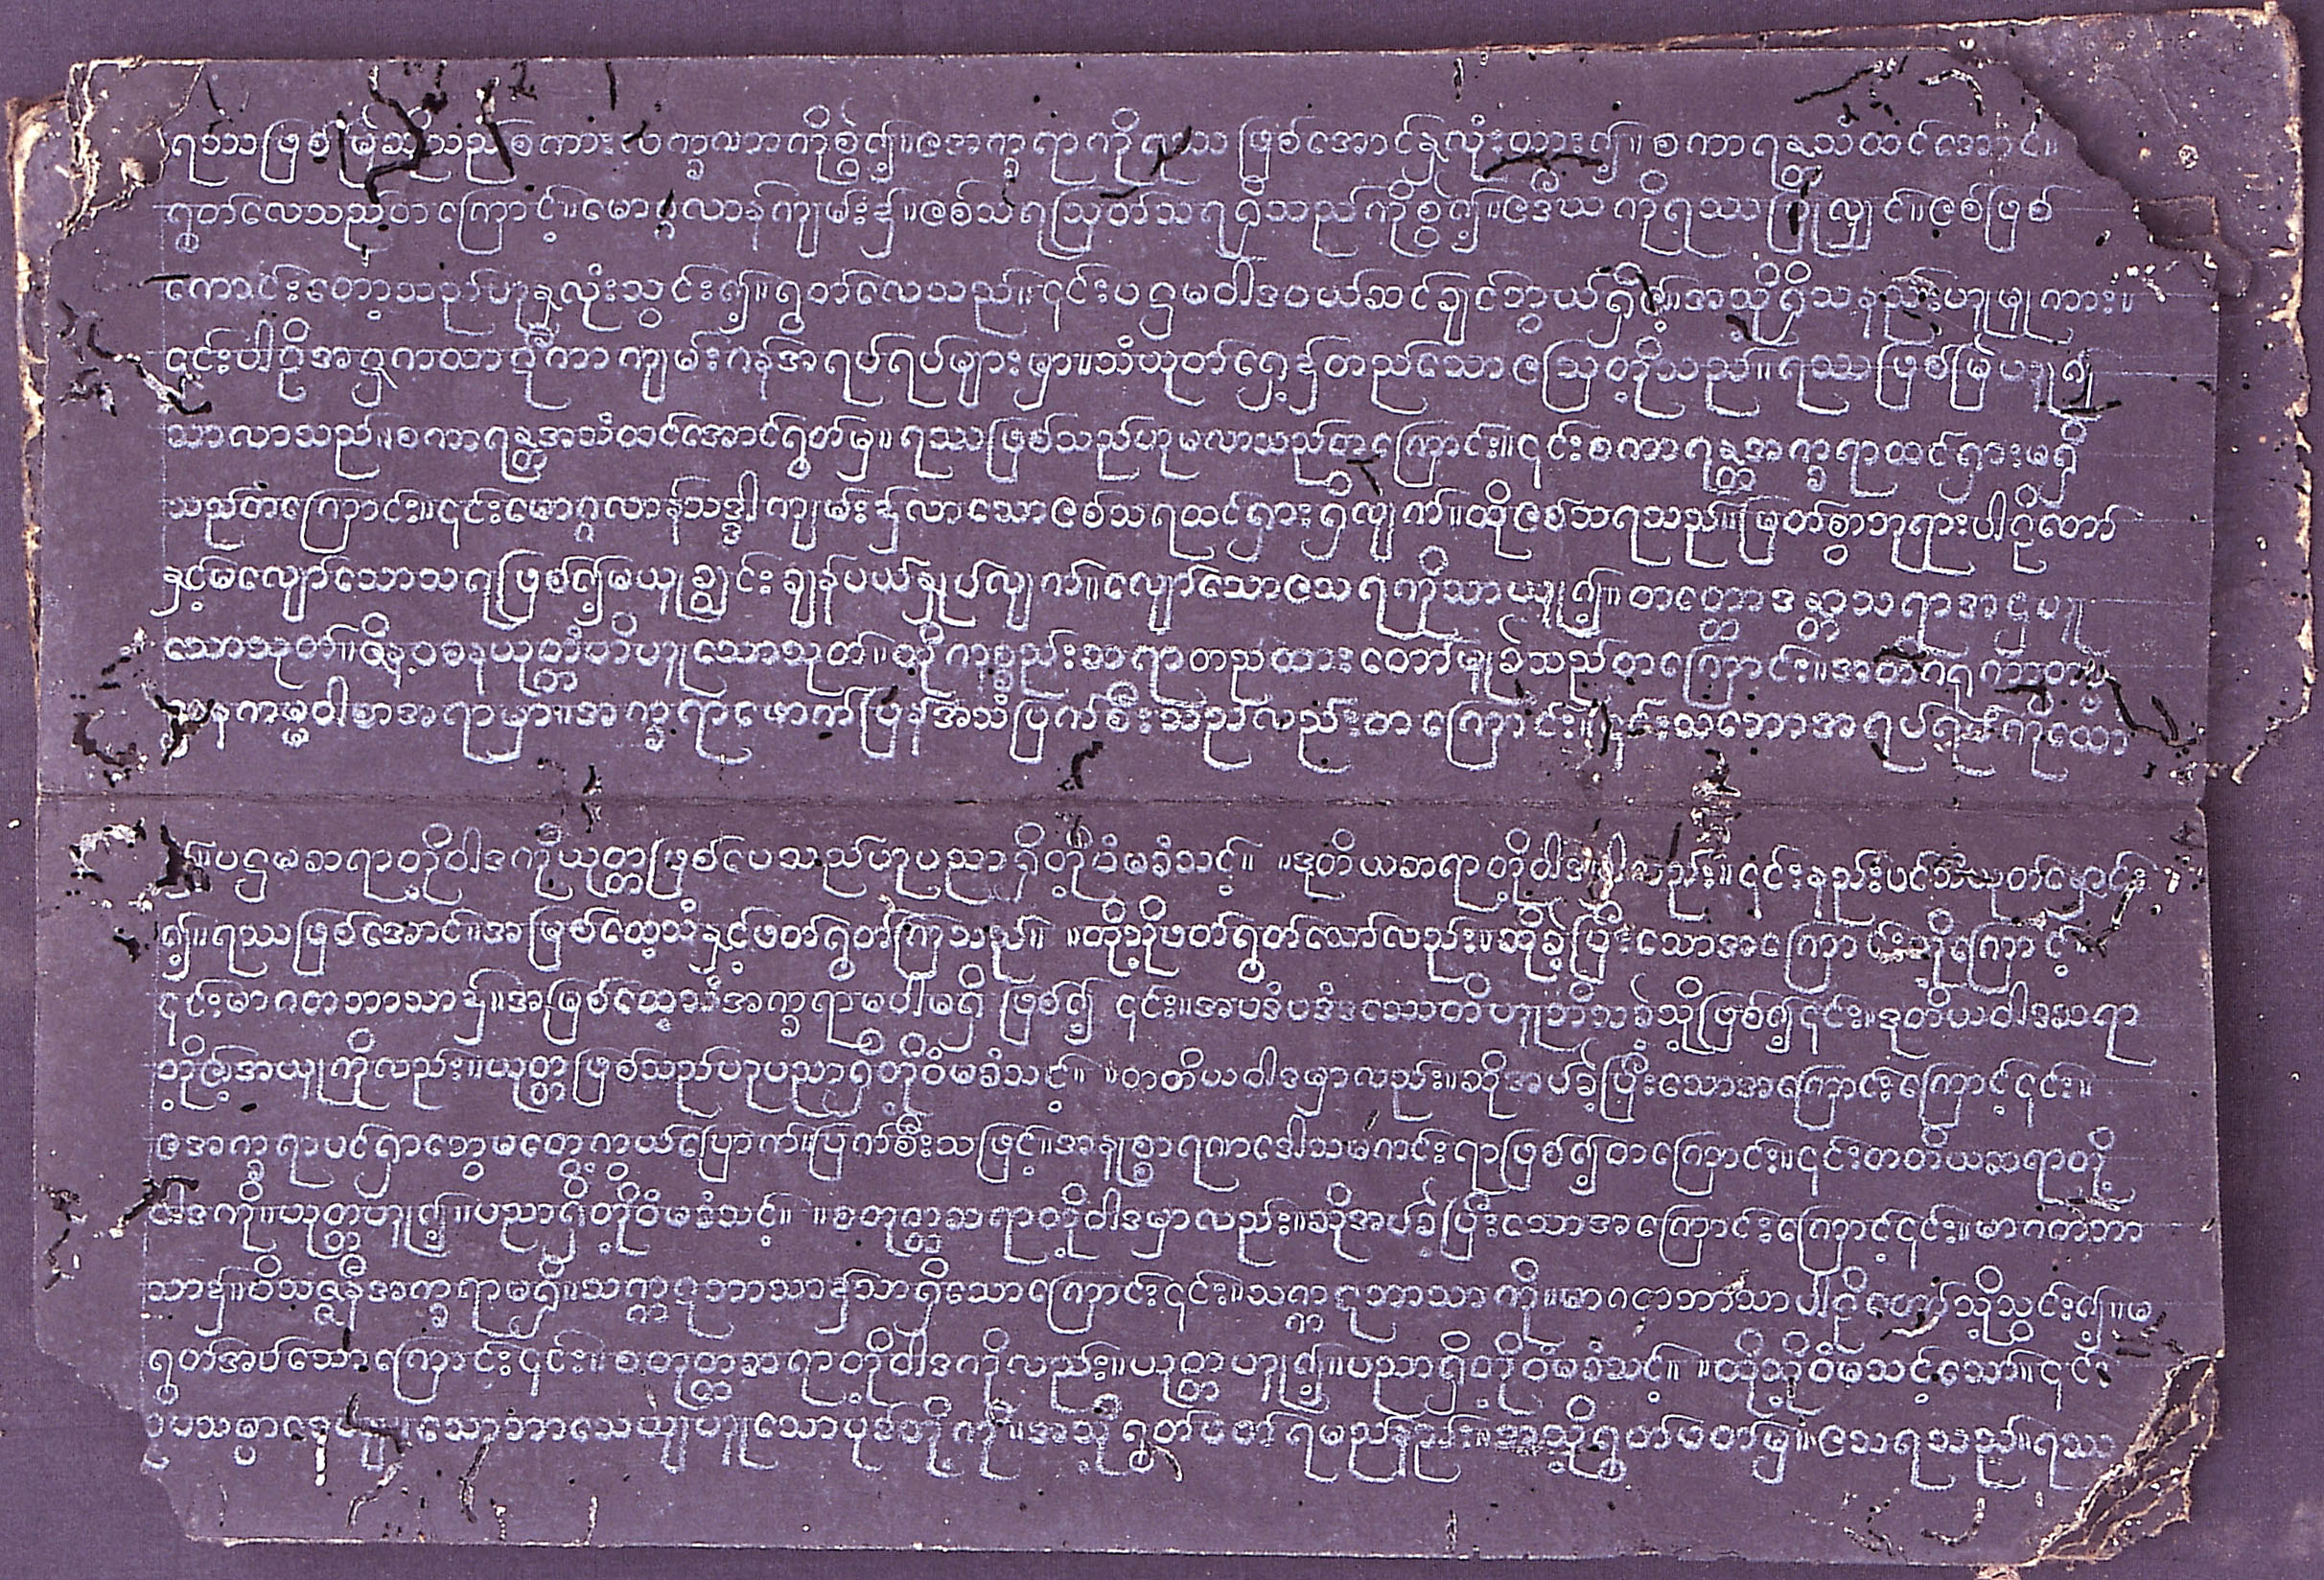 ရဿဖြစ်မြဲဆိုသည်စကား လက္ခဏာကိုစွဲ၍။ဇအက္ခရာကိုရဿ ဖြစ်အောင်နှလုံးထား၍။စကာရန္တသံထင်အောင်။
ရွတ်လေသည်တကြောင့်။မောဂ္ဂလာန်ကျမ်း၌။ဇစ်သရဩတ်သရရှိသည်ကိုစွဲ၍။ဇဒီဃကိုရဿပြုလျှင်။ဇစ်ဖြစ်
ကောင်းတော့သည်ဟုနှလုံးသွင်း၍။ရွတ်လေသည်။၎င်းပဌမဝါဒဝယ်ဆင်ချင်ဘွယ်ရှိ၏။အသို့ရှိသနည်းဟူမူကား။
၎င်းပါဠိအဋ္ဌကထာဋီကာကျမ်းဂန်အရပ်ရပ်များမှာ။သံယုတ်ရှေ့၌တည်သောဇဩတို့သည်။ရဿဖြစ်မြဲဟူ၍
သာလာသည်။စကာရန္တအသံထင်အောင်ရွတ်မှ။ရဿဖြစ်သည်ဟုမလာသည်တကြောင်း။၎င်းစကာရန္တအက္ခရာထင်ရှားမရှိ
သည်တကြောင်း။၎င်းမောဂ္ဂလာန်သဒ္ဒါကျမ်း၌လာသောဇစ်သရထင်ရှားရှိလျက်။ထိုဇစ်သရသည်။မြတ်စွာဘုရားပါဠိတော်
နှင့်မလျော်သောသရဖြစ်၍မယူချွင်းချန်ပယ်နှုပ်လျက်။လျော်သောဇသရကိုသာယူ၍။တတ္ထောဒန္တာသရာအဋ္ဌဟူ
သောသုတ်။ဇိနဝစနယုတ္တံဟိဟူသောသုတ်။ထိုကစ္စည်းဆရာတည်ထားတော်မူခဲ့သည်တကြောင်း။
ကမ္မဝါစာအရာမှာ။အက္ခရာဖောက်ပြန်အသံပြက်စီးသည်လည်းတကြောင်း။၎င်းသဘောအရပ်ရပ်ကိုထော
၍။ပဌမဆရာတို့ဝါဒကိုယုတ္တဖြစ်ပေသည်ဟုပညာရှိတို့ဝံမခံသင့်။ ။ဒုတိယဆရာတို့ဝါဒ၌လည်း။၎င်းနည်းပင်သံယုတ်နှောင်း
၍။ရဿဖြစ်အောင်။အမြစ်ထေ့သံနှင့်ဖတ်ရွတ်ကြသည်။ ။ထိုသို့ဖတ်ရွတ်သော်လည်း။ဆိုခဲ့ပြီးသောအကြောင်းတို့ကြောင့်
၎င်းမာဂဓဘာသာ၌။အမြစ်ထေ့သံအက္ခရာမပါမရှိ ဖြစ်၍ ၎င်း။အပဒံပဒံဒဿေတိဟူဘိသခဲ့သို့ဖြစ်၍၎င်း။ဒုတိယဝါဒဆရာ
တို့၏အယူကိုလည်း။ယုတ္တဖြစ်သည်ဟုပညာရှိတို့ဝံမခံသင့်။ ။တတိယဝါဒမှာလည်း။ဆိုအပ်ခဲ့ပြီးသောအကြောင်းကြောင့်၎င်း။
ဇအက္ခရာပင်ရှာဘွေမတွေ့ကွယ်ပြောက်။ပြက်စီးသဖြင့်။အနုစ္စာရဏဒေါသမကင်းရာဖြစ်၍တကြောင်း။၎င်းတတိယဆရာတို့
ဝါဒကို။ယုတ္တဟူ၍။ပညာရှိတို့ဝံမခံသင့်။ ။စတုတ္ထဆရာတို့ဝါဒမှာလည်း။ဆိုအပ်ခဲ့ပြီးသောအကြောင်းကြောင့်၎င်း။မာဂဓဘာ
သာ၌။ဝိသဇ္ဇနီအက္ခရာမရှိ။သက္ကဋဘာသာ၌သာရှိသောကြောင်း၎င်း။သက္ကဋဘာသာကို။မာဂဓဘာသာပါဠိတော်သို့သွင်း၍။မ
ရွတ်အပ်သောကြောင်း၎င်း။စတုတ္ထဆရာတို့ဝါဒကိုလည်း။ယုတ္တဟူ၍။ပညာရှိတို့ဝံမခံသင့်။ ။ထိုသို့ဝံမသင့်သော်။၎င်း
ဥပသမ္ပာဒေယျ သောဘာသေယျဟူသောပုဒ်တို့ကို။အသို့ရွတ်ဖတ်ရမည်နည်း။အသို့ရွတ်ဖတ်မှ။ဇသရသည်။ရဿ